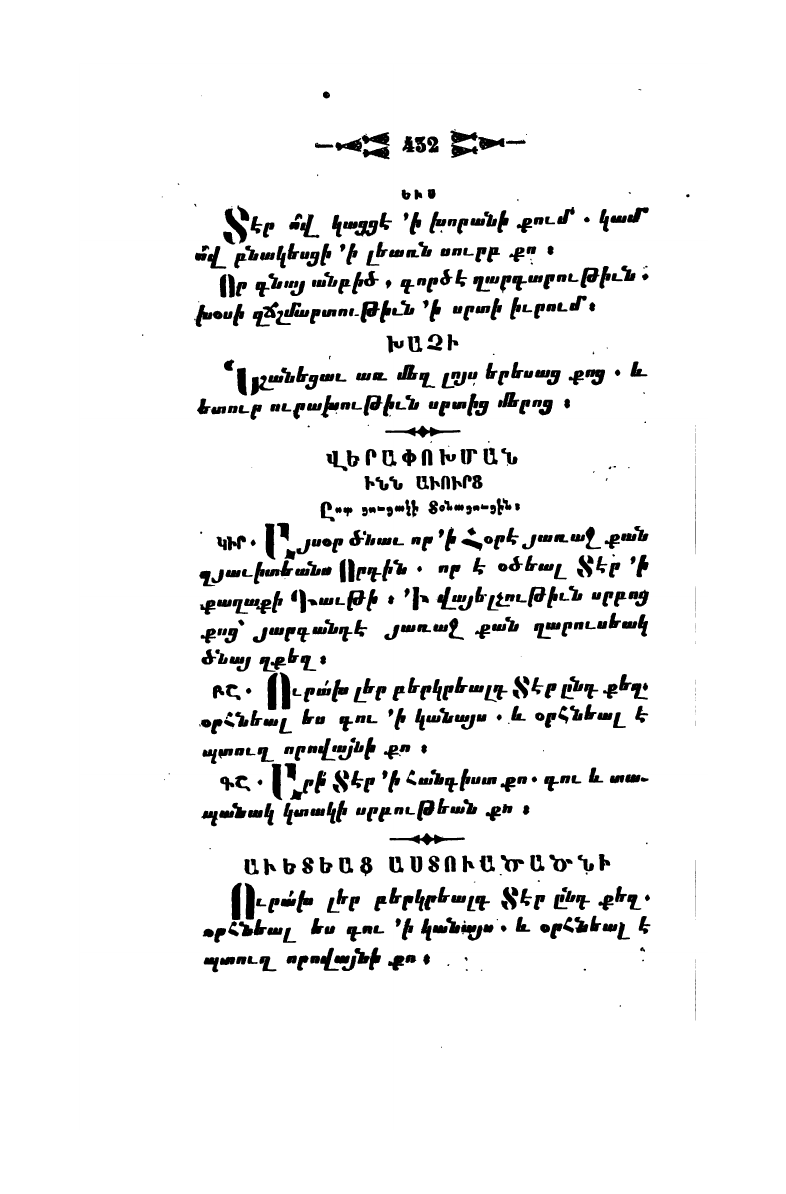 432
ԵՒՍ
Տէր ո՞վ կացցէ ՚ի խորանի քում՝ . կամ՝
ո՞վ բնակեսցի ՚ի լեառն սուրբ քո ։
Որ գնայ անբիծ , գործէ զարդարութիւն .
խօսի զճշմարտութիւն ՚ի սրտի իւրում՝։
ԽԱՉԻ
Նշանեցաւ առ մեզ լոյս երեսաց քոց . և
ետուր ուրախութիւն սրտից մերոց ։
ՎԵՐԱՓՈԽՄԱՆ
ԻՆՆ ԱՒՈՒՐՑ
Ըստ ցուցակի Տօնացուցին։
ԿԻՐ . Այսօր ծնաւ որ ՚ի Հօրէ յառաջ քան
զյաւիտեանս Որդին . որ է օծեալ Տէր ՚ի
քաղաքի Դաւթի ։ ՚Ի վայելչութիւն սրբոց
քոց՝ յարգանդէ յառաջ քան զարուսեակ
ծնայ զքեզ ։
ԲՇ . Ուրա՛խ լեր բերկրեալդ Տէր ընդ քեզ.
օրհնեալ ես դու ՚ի կանայս . և օրհնեալ է
պտուղ որովայնի քո ։
ԳՇ . Արի՛ Տէր ՚ի հանգիստ քո . դու և տա֊
պանակ կտակի սրբութեան քո ։
ԱՒԵՏԵԱՑ ԱՍՏՈՒԱԾԱԾՆԻ
Ուրա՛խ լեր բերկրեալդ Տէր ընդ քեզ .
օրհնեալ ես դու ՚ի կանայս . և օրհնեալ է
պտուղ որովայնի քո ։